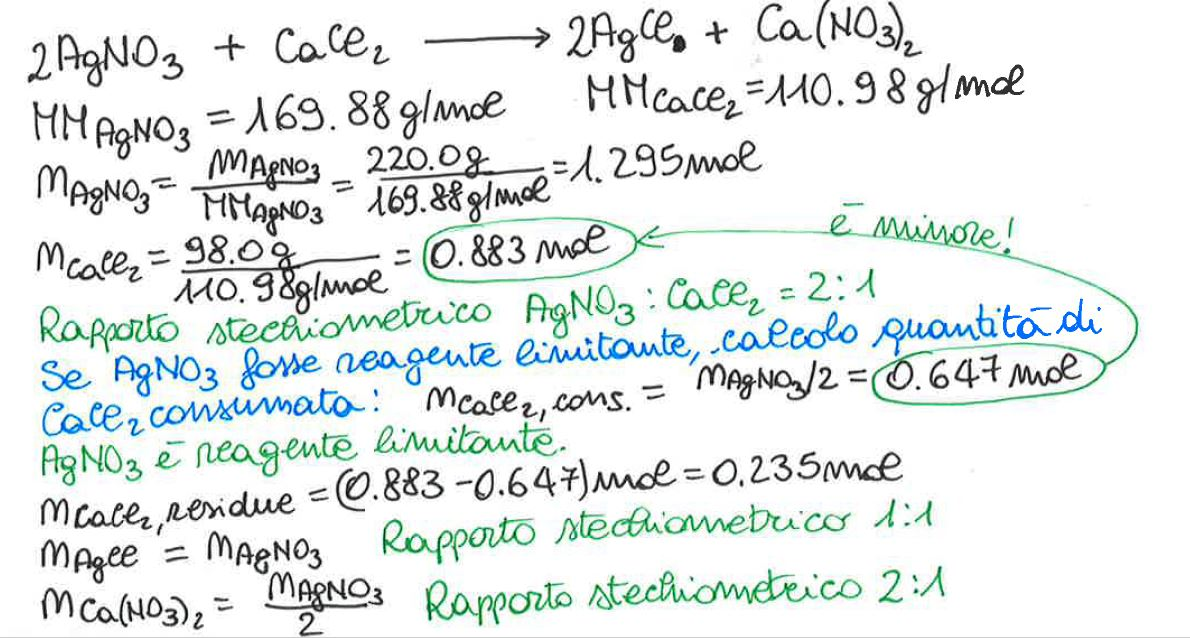 2AgNO₃ + CaCl₂ ⟶ 2AgCl + Ca(NO₃)₂
MM_AgNO₃ = 169.88 g/mol MM_CaCl₂ = 110.98 g/mol
n_AgNO₃ = m_AgNO₃/MM_AgNO₃ = 220.0g/169.88 g/mol = 1.295 mol
n_CaCl₂ = 98.0 g/110.98 g/mol = 0.883 mol è minore!
Rapporto stechiometrico AgNO₃ : CaCl₂ = 2:1
Se AgNO₃ fosse reagente limitante, calcolo quantità di
CaCl₂ consumata: n_CaCl₂, cons. = n_AgNO₃/2 = 0.647 mol
AgNO₃ è reagente limitante.
n_CaCl₂, residue = (0.883 - 0.647) mol = 0.235 mol
n_AgCl = n_AgNO₃ Rapporto stechiometrico 1:1
n_Ca(NO₃)₂ = n_AgNO₃/2 Rapporto stechiometrico 2:1